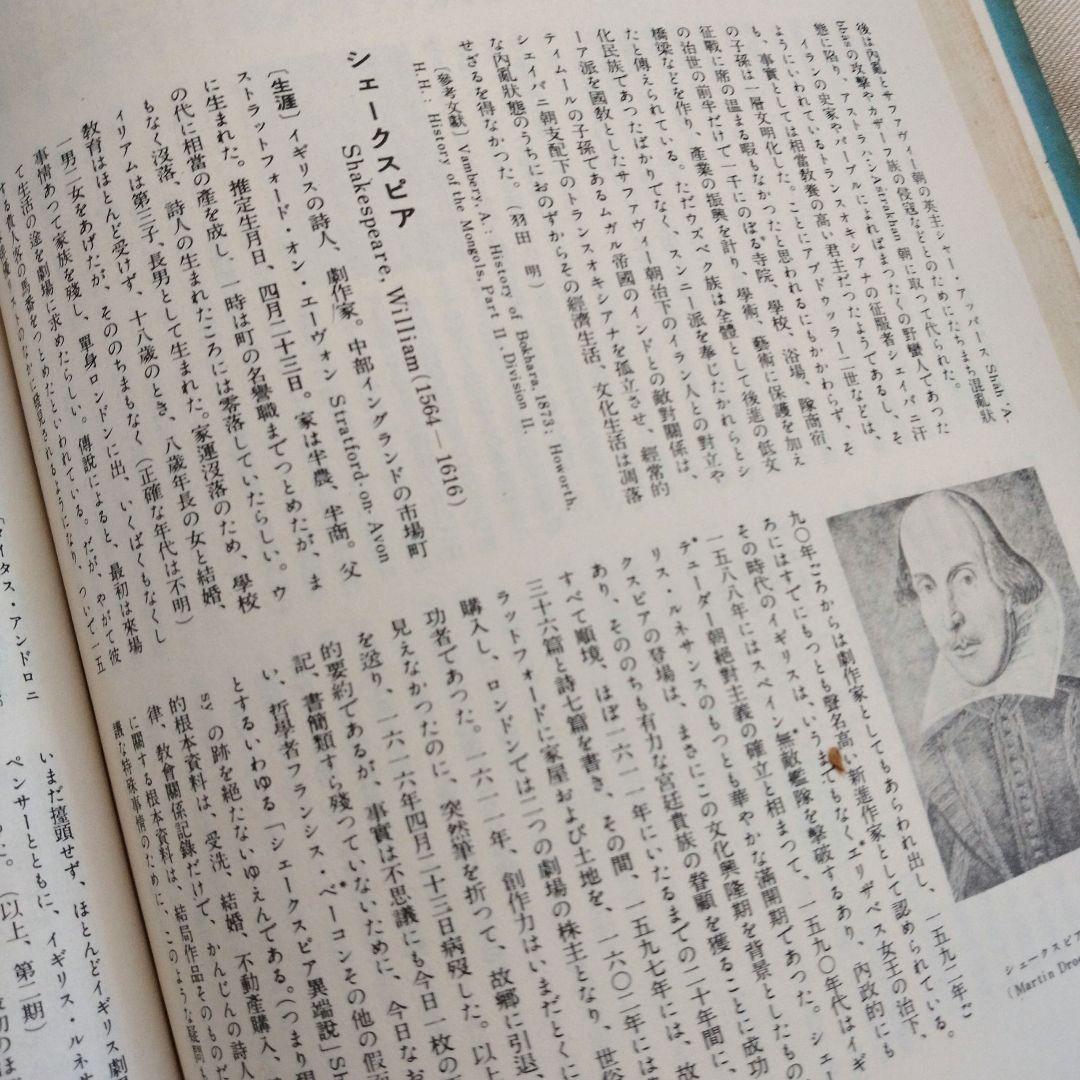 後は內亂とサファヴィー朝の英主シャー・アッバース Shah 'A-
bbas の攻擊やカザーフ族の侵寇などとのためにたちまち混亂狀
態に陷り、アストラハン Astrakhan 朝に取つて代られた。
イランの史家やバーブルによればまつたくの野蠻人であつた
ようにいわれているトランスオキシアナの征服者シェイバニ汗
も、事實としては相當敎養の高い君主だつたようであるし、そ
の子孫は一層文明化した。ことにアブドゥッラー二世などは、
征戰に席の溫まる暇もなかつたと思われるにもかかわらず、そ
の治世の前半だけで一千にのぼる寺院、學校、浴場、隊商宿、
橋梁などを作り、產業の振興を計り、學術、藝術に保護を加え
たと傳えられている。ただウズベク族は全體として後進の低文
化民族であつたばかりでなく、スンニー派を奉じたかれらとシ
ーア派を國敎としたサファヴィー朝治下のイラン人との對立や
ティムールの子孫であるムガル帝國のインドとの敵對關係は、
シェイバニ朝支配下のトランスオキシアナを孤立させ、經常的
な內亂狀態のうちにおのずからその經濟生活、文化生活は凋落
せざるを得なかつた。（羽田 明）
〔參考文獻〕 Vambery, A.: History of Bokhara, 1873; Howorth,
H.H.: History of the Mongols, Part II, Division II.
シェークスピア
Shakespeare, William (1564—1616)
〔生涯〕イギリスの詩人、劇作家。中部イングランドの市場町
ストラットフォード・オン・エーヴォン Stratford-on-Avon
に生まれた。推定生月日、四月二十三日。家は半農、半商。父
の代に相當の產を成し、一時は町の名譽職までつとめたが、ま
もなく沒落、詩人の生まれたころには零落していたらしい。ウ
ィリアムは第三子、長男として生まれた。家運沒落のため、學校
敎育はほとんど受けず、十八歲のとき、八歲年長の女と結婚、
一男二女をあげたが、そののちまもなく（正確な年代は不明）
事情あつて家族を殘し、單身ロンドンに出、いくばくもなくし
て生活の途を劇場に求めたらしい。傳說によると、最初は來場
する貴人客の馬番をつとめたといわれている。だが、やがて彼
リストのなかに發見されるようになり、ついで一五
九〇年ころからは劇作家としてもあらわれ出し、一五九二年ご
ろにはすでにもつとも聲名高い新進作家として認められている。
その時代のイギリスは、いうまでもなくエリザベス女王の治下、
一五八八年にはスペイン無敵艦隊を擊破するあり、內政的にも
テューダー朝絕對主義の確立と相まつて、一五九〇年代はイギ
リス・ルネサンスのもつとも華やかな滿開期であつた。シェー
クスピアの登場は、まさにこの文化興隆期を背景としたもの
あり、そののちも有力な宮廷貴族の眷顧を獲ることに成功
すべて順境、ほぼ一六一一年にいたるまでの二十年間に、
三十六篇と詩七篇を書き、その間、一五九七年には、故
ラットフォードに家屋および土地を、一六〇二年には
購入し、ロンドンでは二つの劇場の株主となり、世俗
功者であつた。一六一一年、創作力はいまだとくに
見えなかつたのに、突然筆を折つて、故鄕に引退、
を送り、一六一六年四月二十三日病歿した。以上
的要約であるが、事實は不思議にも今日一枚の
記、書簡類すら殘つていないために、今日なお
い、哲學者フランシス・ベーコンその他の假
とするいわゆる「シェークスピア異端說」Sh
sy の跡を絕たないゆえんである。（つまり現
的根本資料は、受洗、結婚、不動產購入、
律、敎會關係記錄だけで、かんじんの詩人
に關する根本資料は、結局作品そのものだ
議な特殊事情のために、このような疑問も
シェークスピア
(Martin Droe
タイタス・アンドロニ
いまだ擡頭せず、ほとんどイギリス劇
ペンサーとともに、イギリス・ルネサ
（以上、第二期）